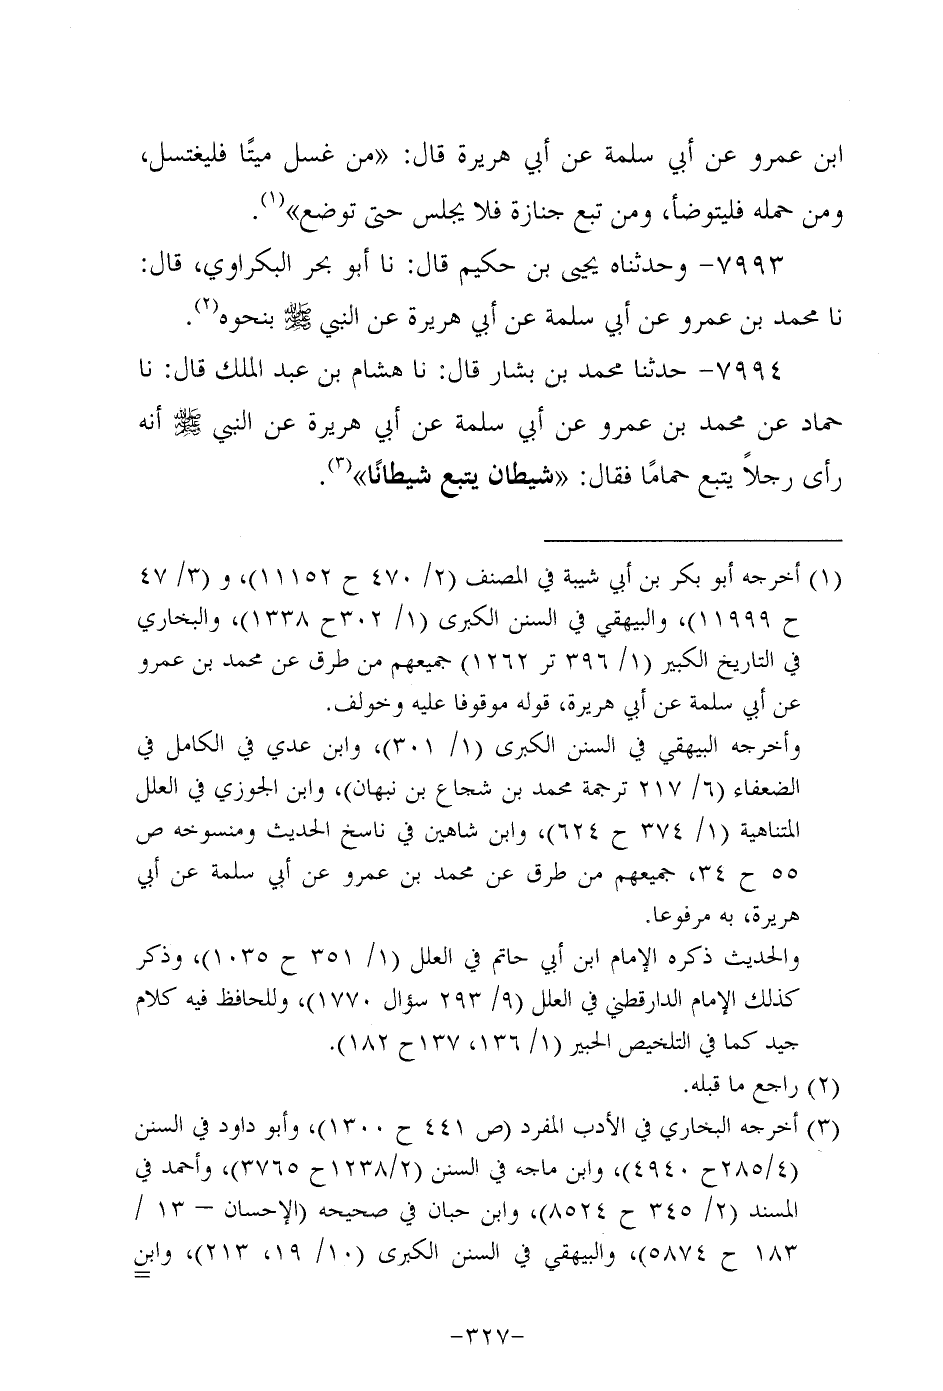 ابن عمرو عن أبي سلمة عن أبي هريرة قال: «من غسل ميتًا فليغتسل،
ومن حمله فليتوضأ، ومن تبع جنازة فلا يجلس حتى توضع»(١).
٧٩٩٣- وحدثناه يحيى بن حكيم قال: نا أبو بحر البكراوي، قال:
نا محمد بن عمرو عن أبي سلمة عن أبي هريرة عن النبي ﷺ بنحوه(٢).
٧٩٩٤- حدثنا محمد بن بشار قال: نا هشام بن عبد الملك قال: نا
حماد عن محمد بن عمرو عن أبي سلمة عن أبي هريرة عن النبي ﷺ أنه
رأى رجلاً يتبع حمامًا فقال: «شيطان يتبع شيطانًا»(٣).
(١) أخرجه أبو بكر بن أبي شيبة في المصنف (٢/ ٤٧٠ ح ١١١٥٢)، و (٣/ ٤٧
ح ١١٩٩٩)، والبيهقي في السنن الكبرى (١/ ٣٠٢ح ١٣٣٨)، والبخاري
في التاريخ الكبير (١/ ٣٩٦ تر ١٢٦٢) جميعهم من طرق عن محمد بن عمرو
عن أبي سلمة عن أبي هريرة، قوله موقوفا عليه وخولف.
وأخرجه البيهقي في السنن الكبرى (١/ ٣٠١)، وابن عدي في الكامل في
الضعفاء (٦/ ٢١٧ ترجمة محمد بن شجاع بن نبهان)، وابن الجوزي في العلل
المتناهية (١/ ٣٧٤ ح ٦٢٤)، وابن شاهين في ناسخ الحديث ومنسوخه ص
٥٥ ح ٣٤، جميعهم من طرق عن محمد بن عمرو عن أبي سلمة عن أبي
هريرة، به مرفوعا.
والحديث ذكره الإمام ابن أبي حاتم في العلل (١/ ٣٥١ ح ١٠٣٥)، وذكر
كذلك الإمام الدارقطني في العلل (٩/ ٢٩٣ سؤال ١٧٧٠)، وللحافظ فيه كلام
جيد كما في التلخيص الحبير (١/ ١٣٦، ١٣٧ح ١٨٢).
(٢) راجع ما قبله.
(٣) أخرجه البخاري في الأدب المفرد (ص ٤٤١ ح ١٣٠٠)، وأبو داود في السنن
(٢٨٥/٤ح ٤٩٤٠)، وابن ماجه في السنن (١٢٣٨/٢ح ٣٧٦٥)، وأحمد في
المسند (٢/ ٣٤٥ ح ٨٥٢٤)، وابن حبان في صحيحه (الإحسان – ١٣ /
١٨٣ ح ٥٨٧٤)، والبيهقي في السنن الكبرى (١٠/ ١٩، ٢١٣)، وابن
-٣٢٧-